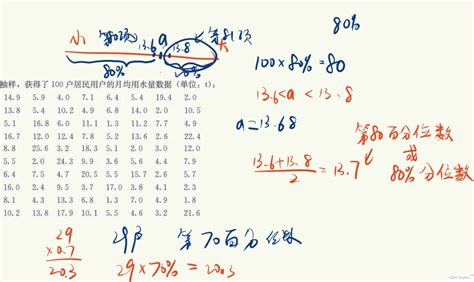 80%
小 第80项 a 第81项
13.6 13.8 大
80% 20%
100×80%=80
抽样，获得了 100 户居民用户的月均用水量数据（单位：t）：
14.9 5.9 4.0 7.1 6.4 5.4 19.4 2.0
13.8 5.4 10.2 4.9 6.8 14.0 2.0 10.5
5.1 16.8 6.0 11.1 1.3 11.2 7.7 4.9
16.7 12.0 12.4 7.8 13.6 2.6 22.4
8.8 25.6 3.2 18.3 5.1 2.0 3.0 12.0
5.5 2.0 24.3 9.9 3.6 5.6 4.4 7.9
6.4 7.5 4.7 20.5 5.5 15.7 2.6 5.7
16.0 2.4 9.5 3.7 17.0 3.8 4.1 2.3
8.1 4.3 13.3 6.8 1.3 7.0 4.9 1.8
10.2 13.8 17.9 10.1 5.5 4.6 3.2 21.6
13.6<a<13.8
a=13.68
第80百分位数
或
80%分位数
13.6+13.8
2
=13.7
29
×0.7
20.3
29户 第70百分位数
29×70%=20.3